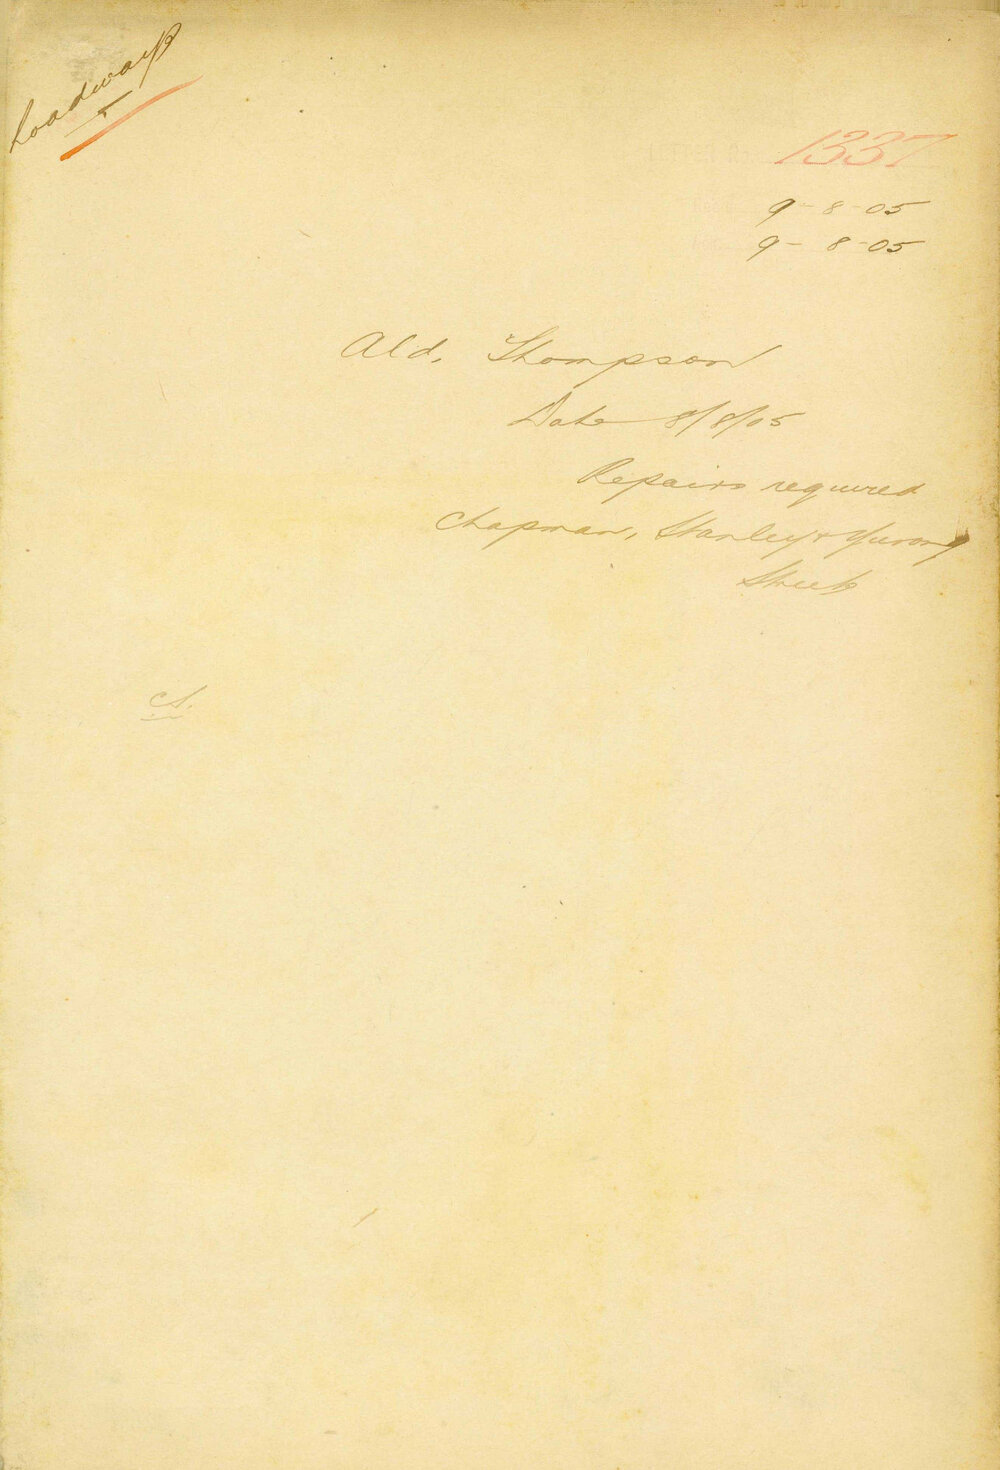 Roadways
1337
9-8-05
9-8-05
Ald. Thompson
Date 8/8/05
Repairs required
Chapman, Stanley & Yurong
Streets